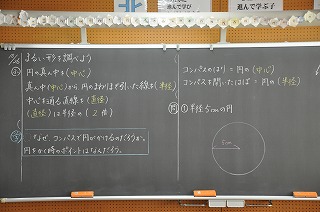 進んで学び
進んで
進んで学ぶ子
まるい形を調べよう
円の真ん中を(中心)
真ん中(中心)から円のまわりまで引いた線を(半径)
中心を通る直線を(直径)
(直径)は半径の(2倍)
なぜ、コンパスで円がかけるのだろうか。
円をかく時のポイントはなんだろう。
コンパスのはり=円の(中心)
コンパスを開いたはば=円の(半径)
問 ①半径5cmの円
5cm